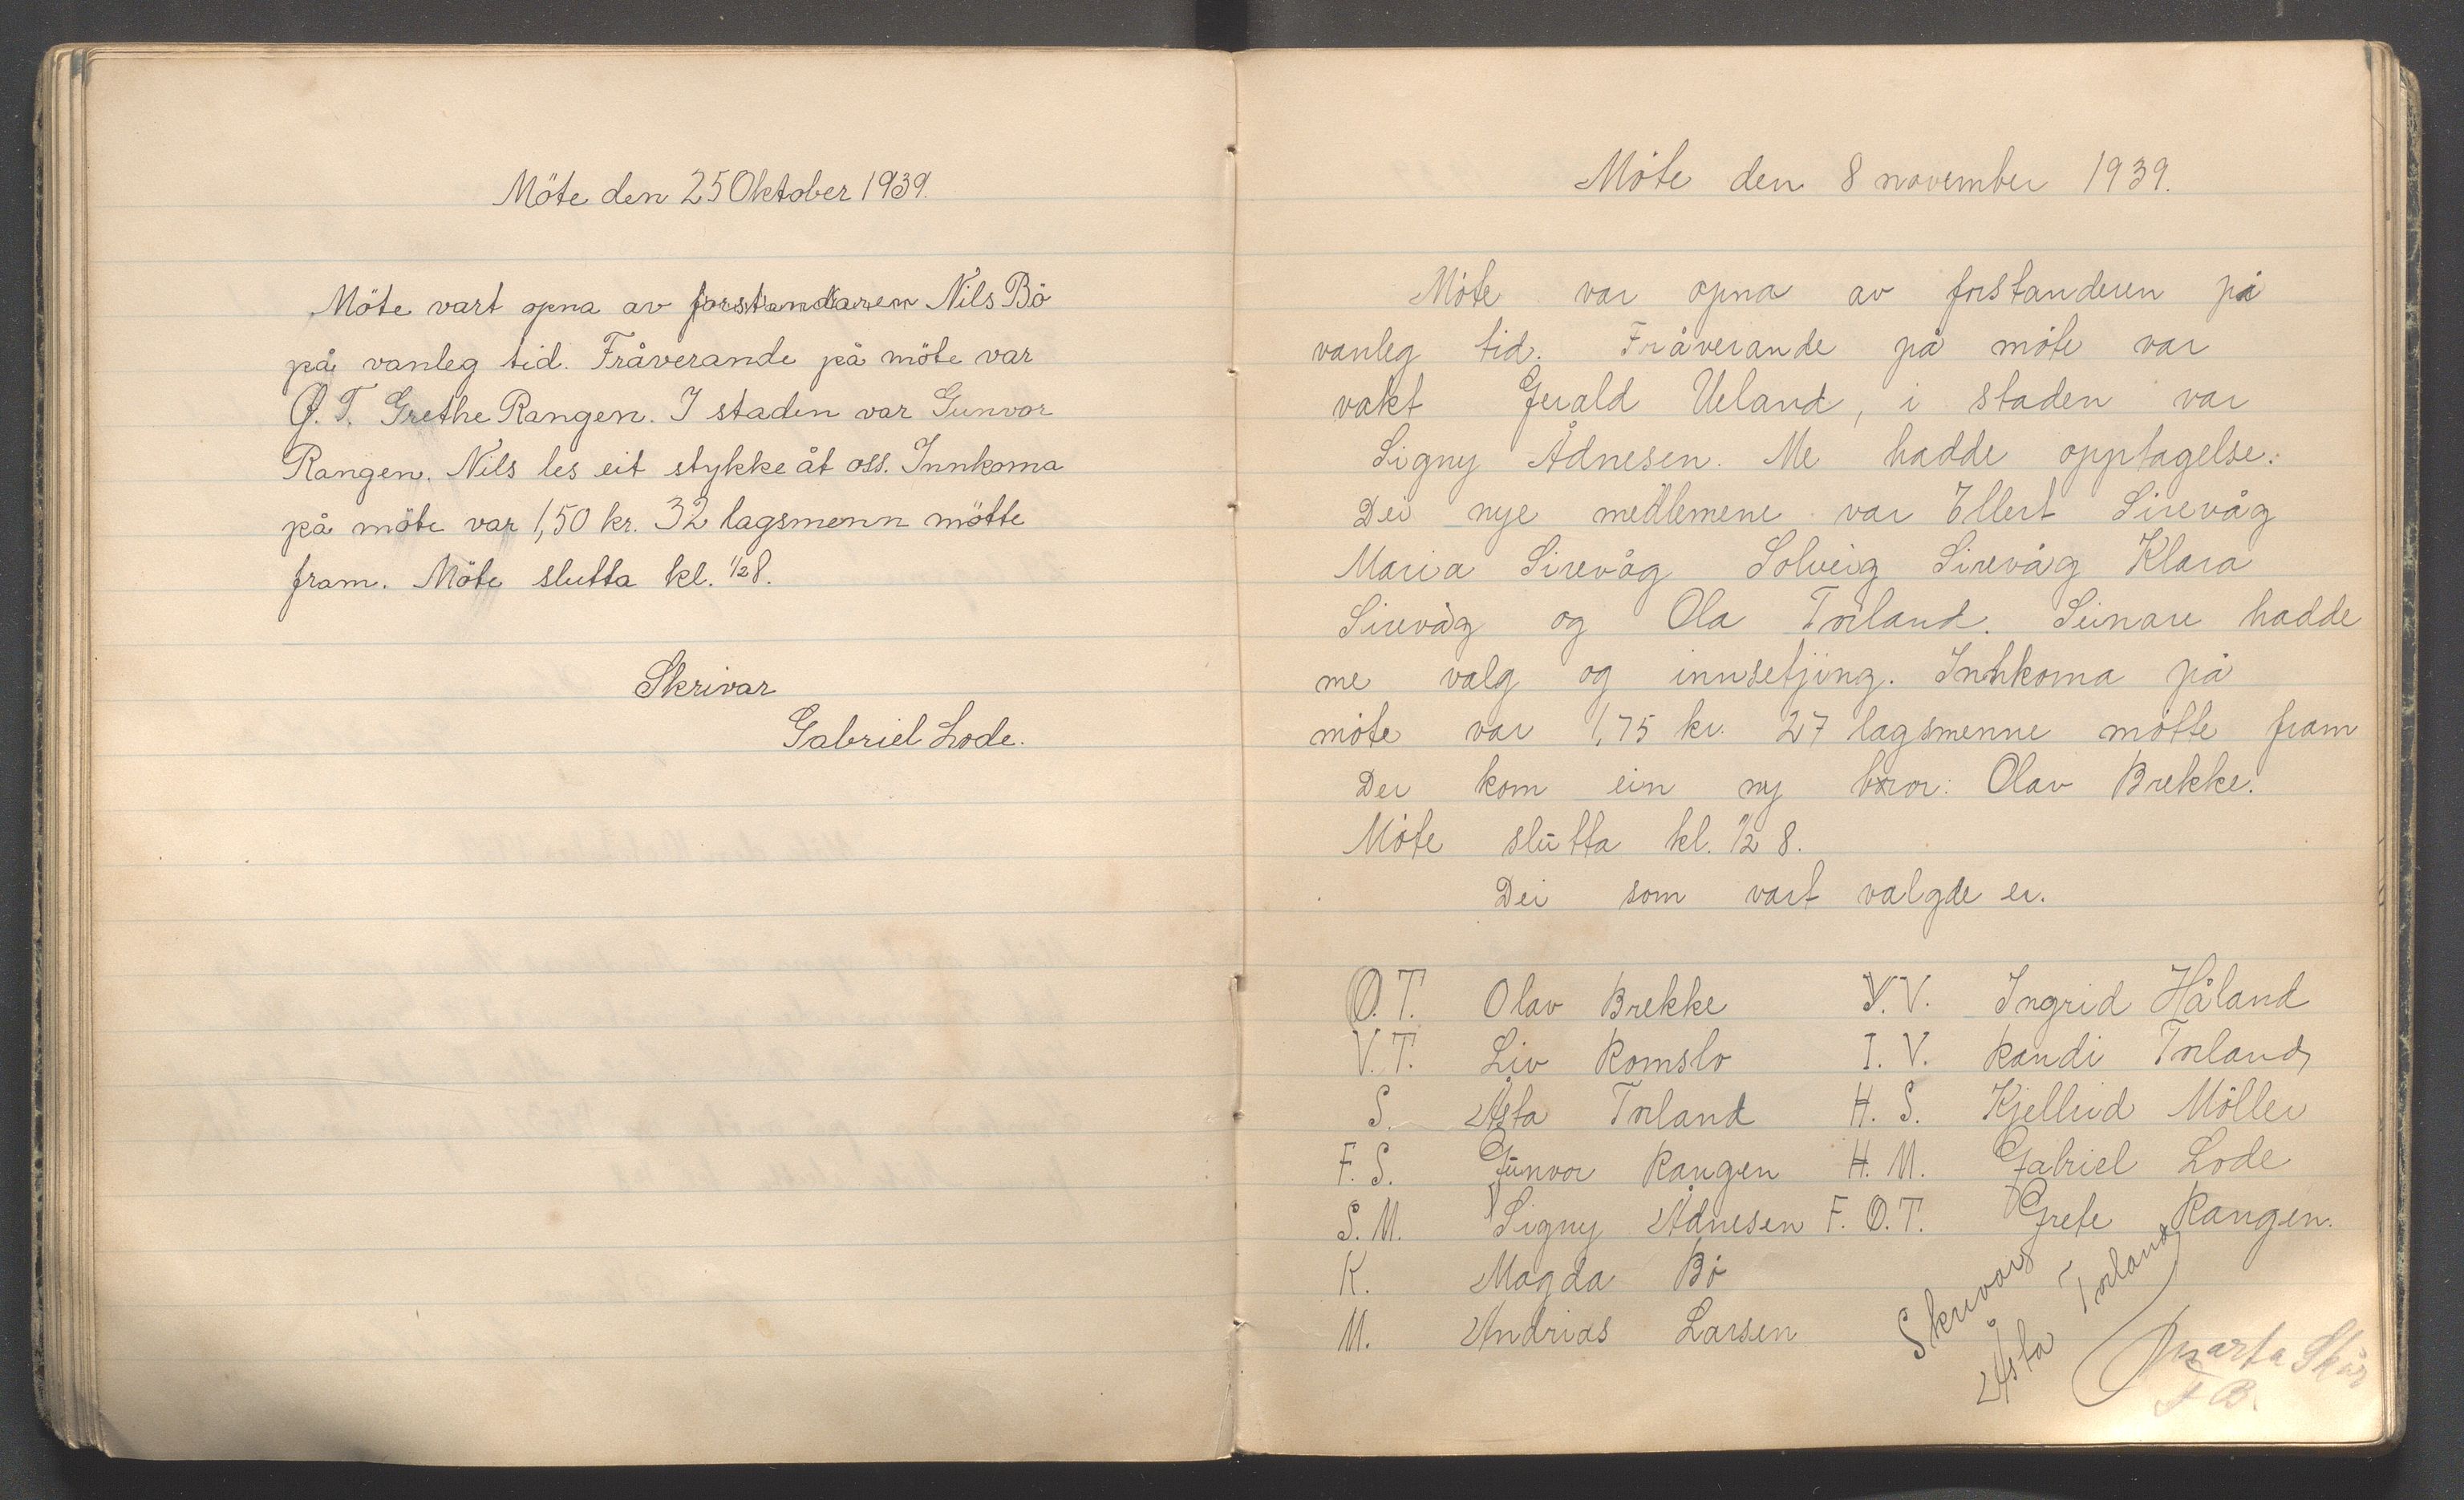 Möte den 25 Oktober 1939.
Möte vart opna av forstandaren Nils Bö
på vanleg tid. Fråverande på möte var
Ø. T. Grethe Rangen. I staden var Gunvor
Rangen. Nils les eit stykke åt oss. Innkoma
på möte var 1,50 kr. 32 lagsmenn mötte
fram. Möte slutta kl. ½ 8.
Skrivar
Gabriel Lode.
Möte den 8 november 1939.
Möte var opna av forstanderen på
vanleg tid. Fråverande på möte var
vakt Gerald Ueland, i staden var
Signy Ådnesen. Me hadde opptagelse.
Dei nye medlemene var Ellert Sirevåg
Maria Sirevåg Solveig Sirevåg Klara
Sirevåg og Ola Torland. Seinare hadde
me valg og innsetjing. Innkoma på
möte var 1,75 kr. 27 lagsmenne mötte fram
Der kom ein ny bror: Olav Brekke.
Möte slutta kl. ½ 8.
Dei som vart valgde er.
Ø.T. Olav Brekke Y.V. Ingrid Håland
V.T. Liv Romslo I.V. Randi Torland
S. Åsta Torland H.S. Kjellrid Möller
F.S. Gunvor Rangen H.M. Gabriel Lode
S.M. Signy Ådnesen F.Ø.T. Grete Rangen.
K. Magda Bö
M. Andrias Larsen
Skrivar
Åsta Torland
Marta Skår
F B.